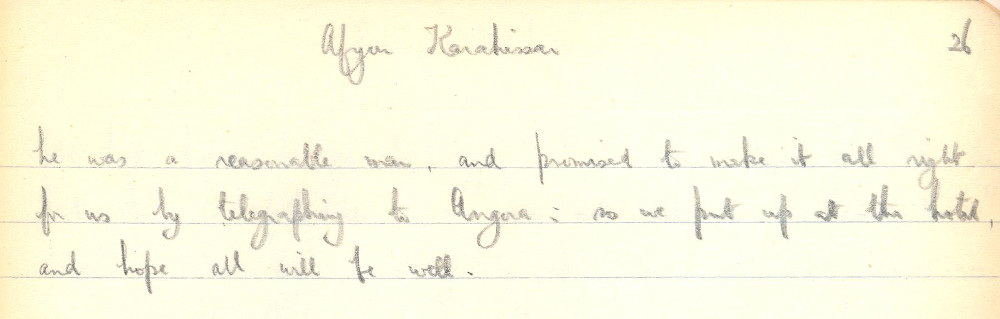 Afyon Karahissar 26
he was a reasonable man, and promised to make it all right
for us by telegraphing to Angora : so we put up at the hotel,
and hope all will be well.